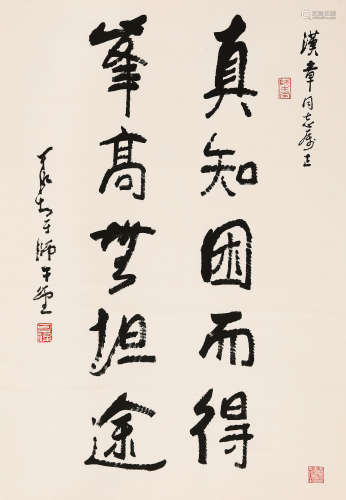 漢章同志屬正
真知困而得
峯高無坦途